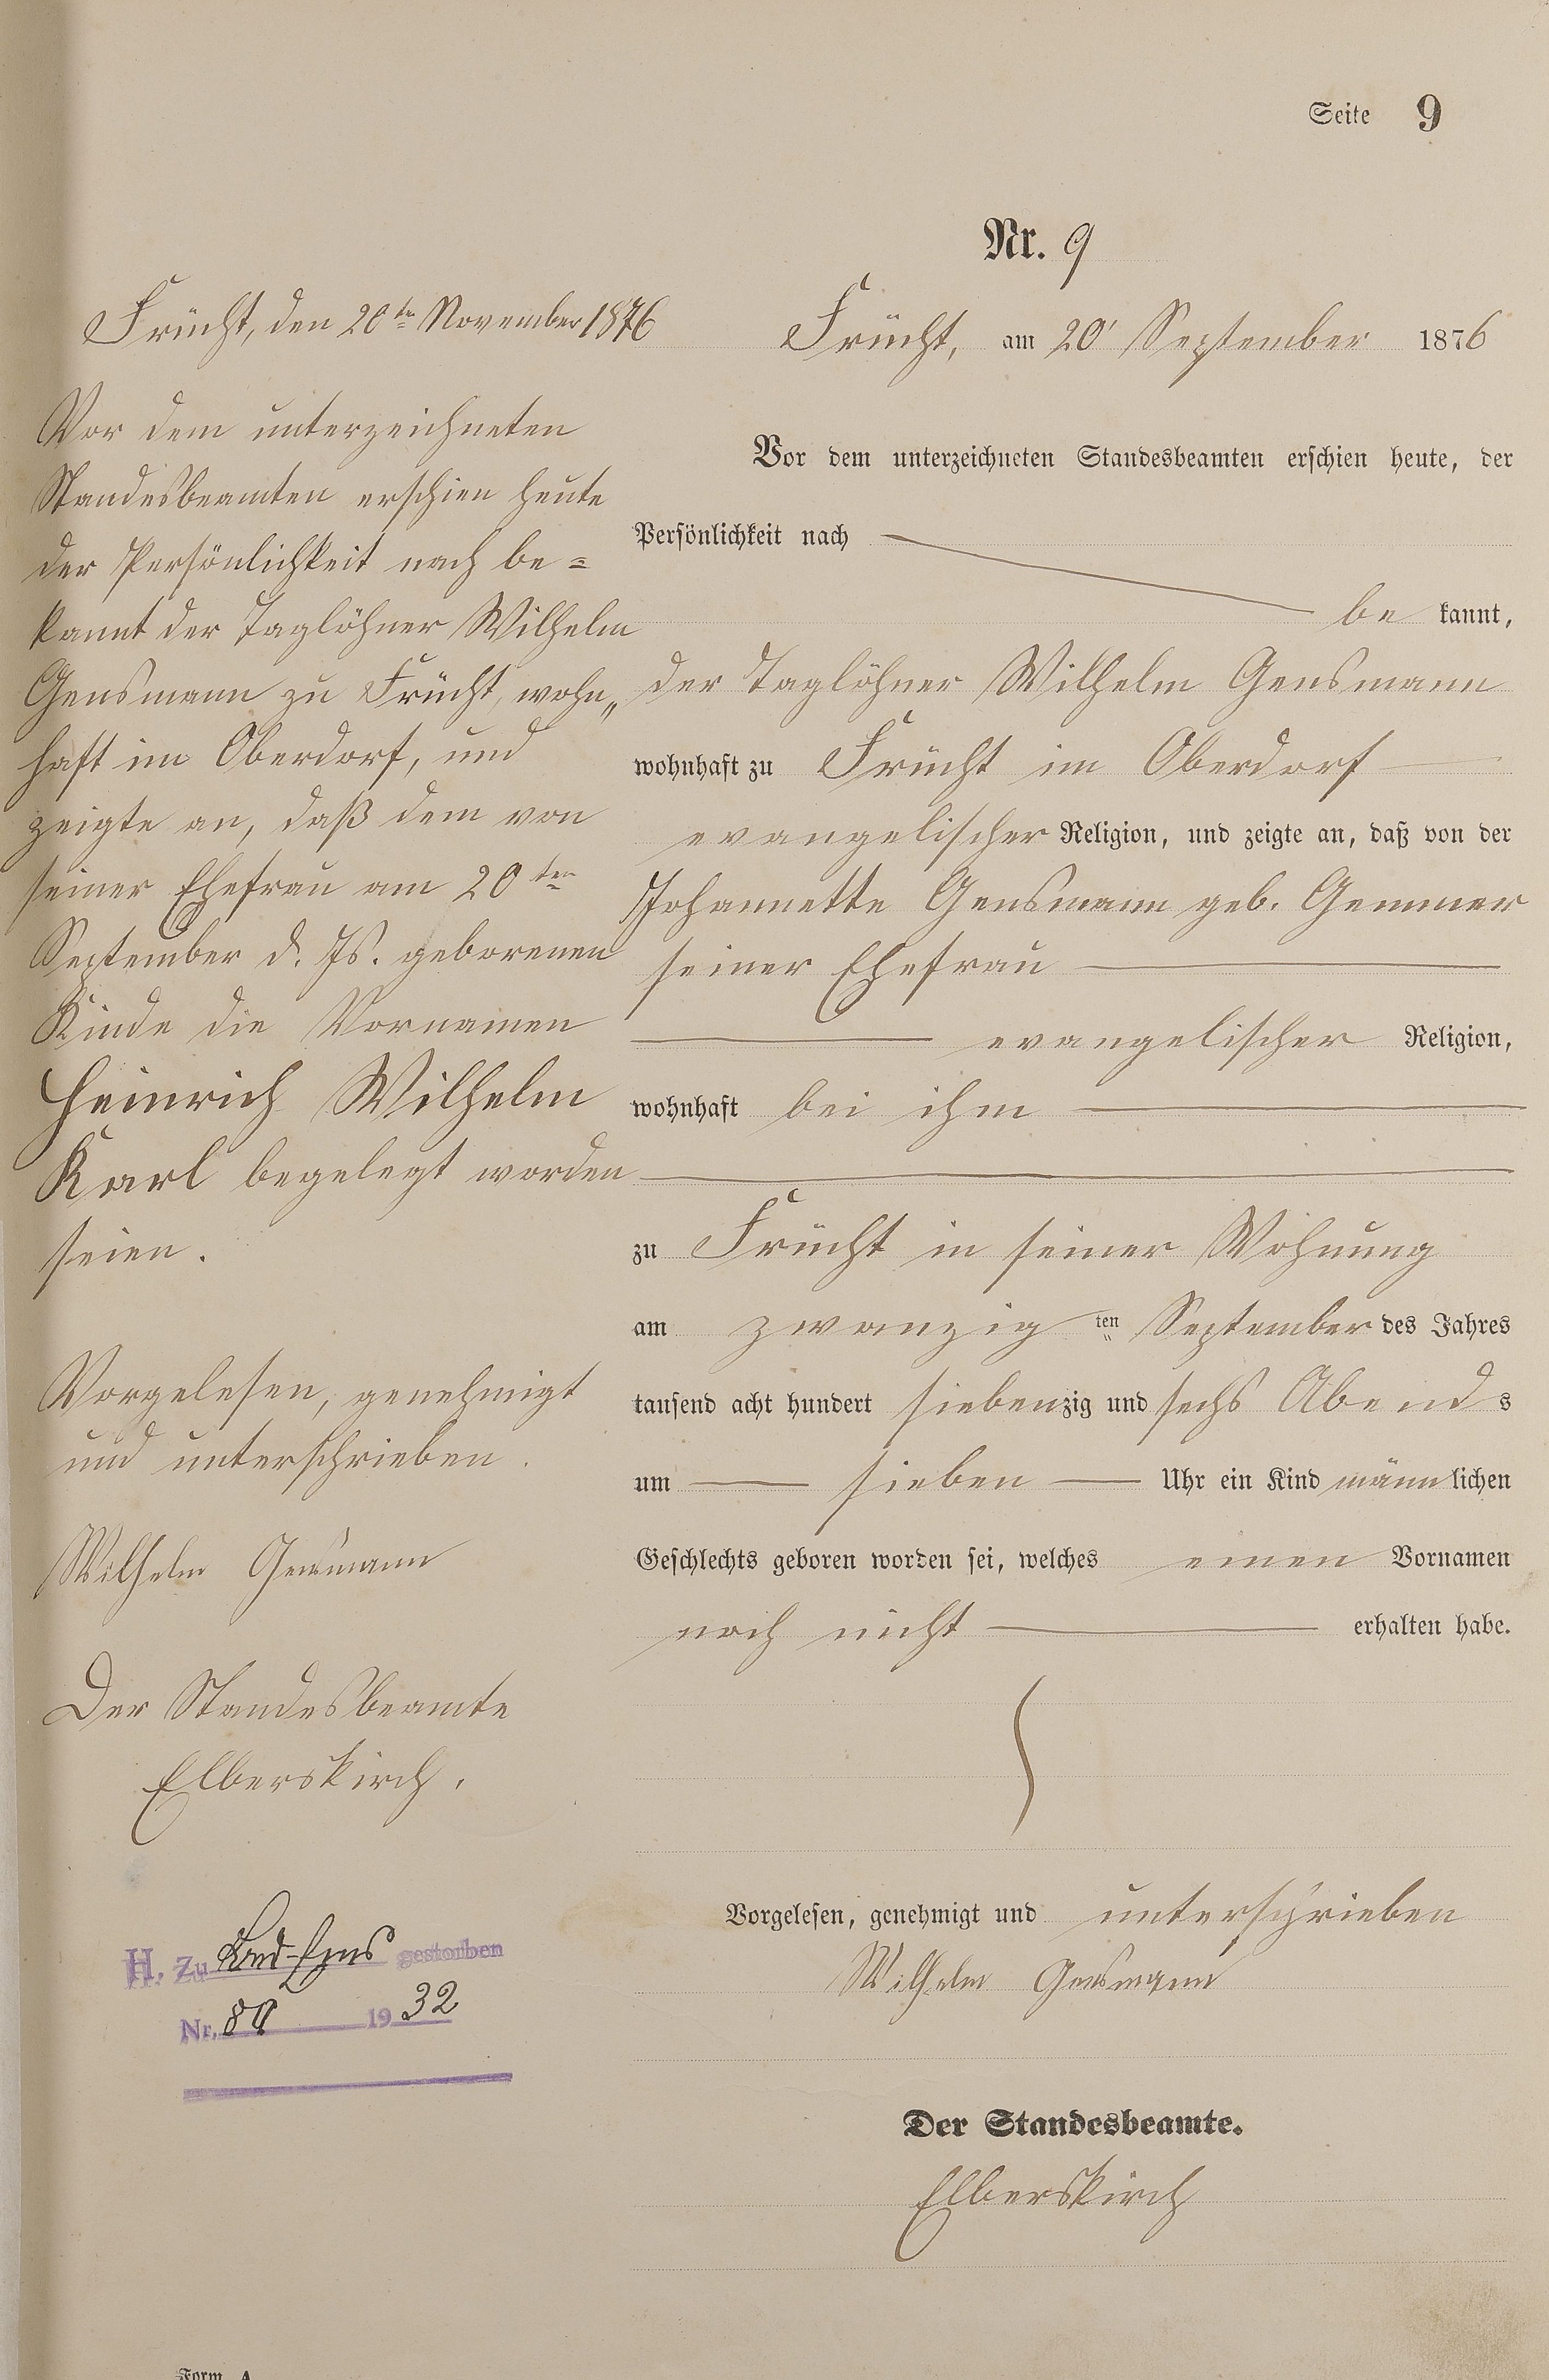 Seite 9
Nr. 9
Frücht, am 20' September 1876
Vor dem unterzeichneten Standesbeamten erschien heute, der
Persönlichkeit nach
be kannt,
der Taglöhner Wilhelm Gensmann
wohnhaft zu Frücht im Oberdorf
evangelischer Religion, und zeigte an, daß von der
Johannette Gensmann geb. Gemmer
seiner Ehefrau
evangelischer Religion,
wohnhaft bei ihm
zu Frücht in seiner Wohnung
am zwanzig ten September des Jahres
tausend acht hundert siebenzig und sechs Abends
um sieben Uhr ein Kind männlichen
Geschlechts geboren worden sei, welches einen Vornamen
noch nicht erhalten habe.
Vorgelesen, genehmigt und unterschrieben
Wilhelm Gensmann
Der Standesbeamte.
Elberskirch
Frücht, den 20ten November 1876
Vor dem unterzeichneten
Standesbeamten erschien heute
der Persönlichkeit nach be=
kannt der Taglöhner Wilhelm
Gensmann zu Frücht, wohn„
haft im Oberdorf, und
zeigte an, daß dem von
seiner Ehefrau am 20ten
September d. Js. geborenen
Kinde die Vornamen
Heinrich Wilhelm
Karl begelegt worden
seien.
Vorgelesen, genehmigt
und unterschrieben.
Wilhelm Gensmann
Der Standesbeamte
Elberskirch.
H. Zu Bad-Ems gestorben
Nr. 1932
Form. A